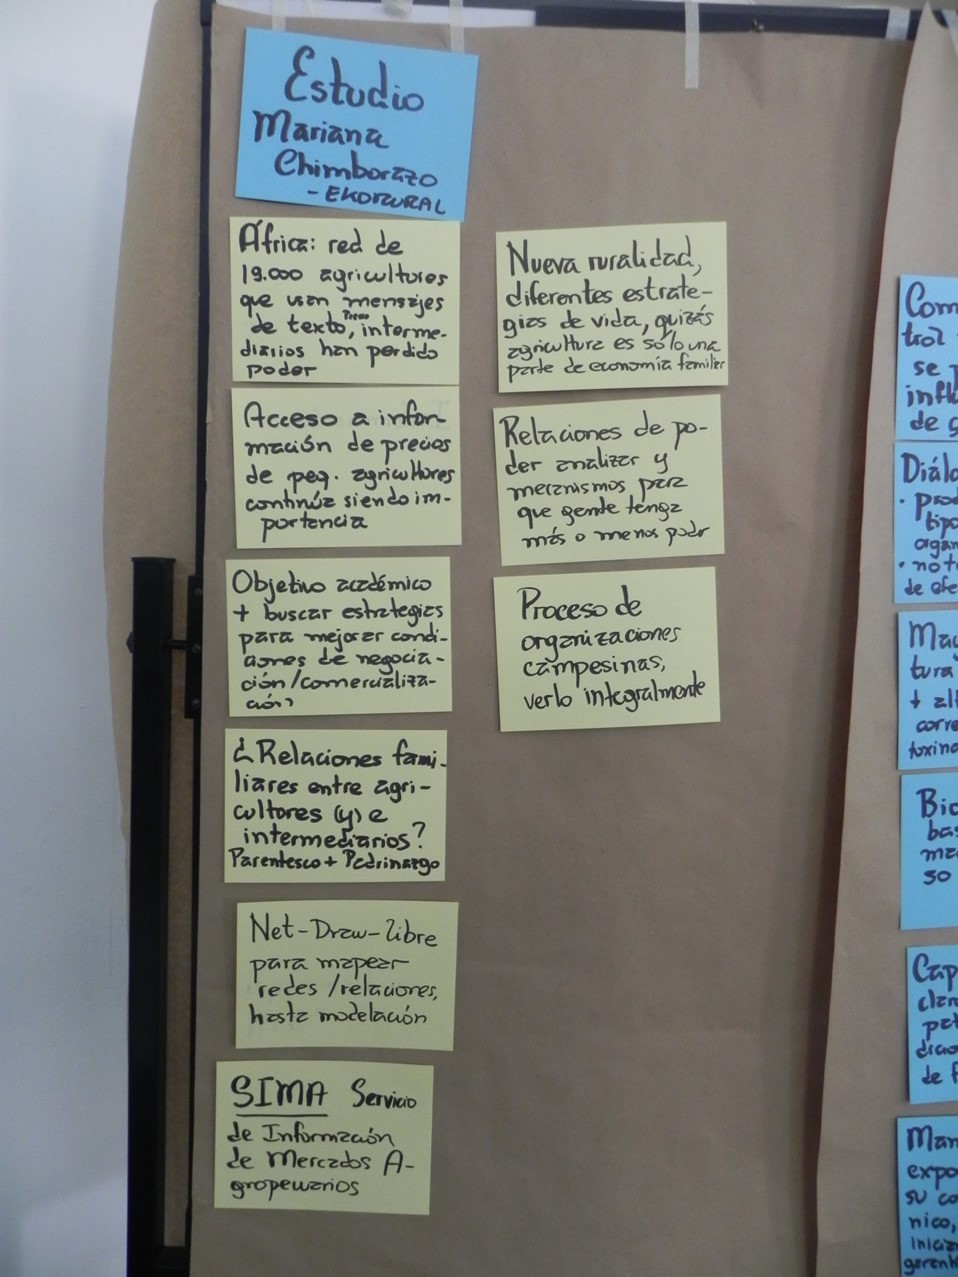 Estudio
Mariana
Chimborazo
- EKORURAL
África: red de
19.000 agricultores
que usan mensajes
de texto, interme-
diarios han perdido
poder
Acceso a infor-
mación de precios
de peq. agricultores
continúa siendo im-
portancia
Objetivo académico
+ buscar estrategias
para mejorar condi-
ciones de negocia-
ción/comercializa-
ción?
¿Relaciones fami-
liares entre agri-
cultores (y) e
intermediarios?
Parentesco + Padrinazgo
Net-Draw-libre
para mapear
redes /relaciones,
hasta modelación
SIMA Servicio
de Información
de Mercados A-
gropecuarios
Nueva ruralidad,
diferentes estrate-
gias de vida, quizás
agricultura es sólo una
parte de economía familiar
Relaciones de po-
der analizar y
mecanismos para
que gente tenga
más o menos podr
Proceso de
organizaciones
campesinas,
verlo integralmente
Com
trol
se p
influ
de g
Diálo
· prod
tipo
organ
· no t
de efe
Mad
tura
+ alt
corre
toxina
Bio
bas
ma
so
Cap
clar
pat
dicio
de f
Man
expo
su co
nico,
inicia
gerent